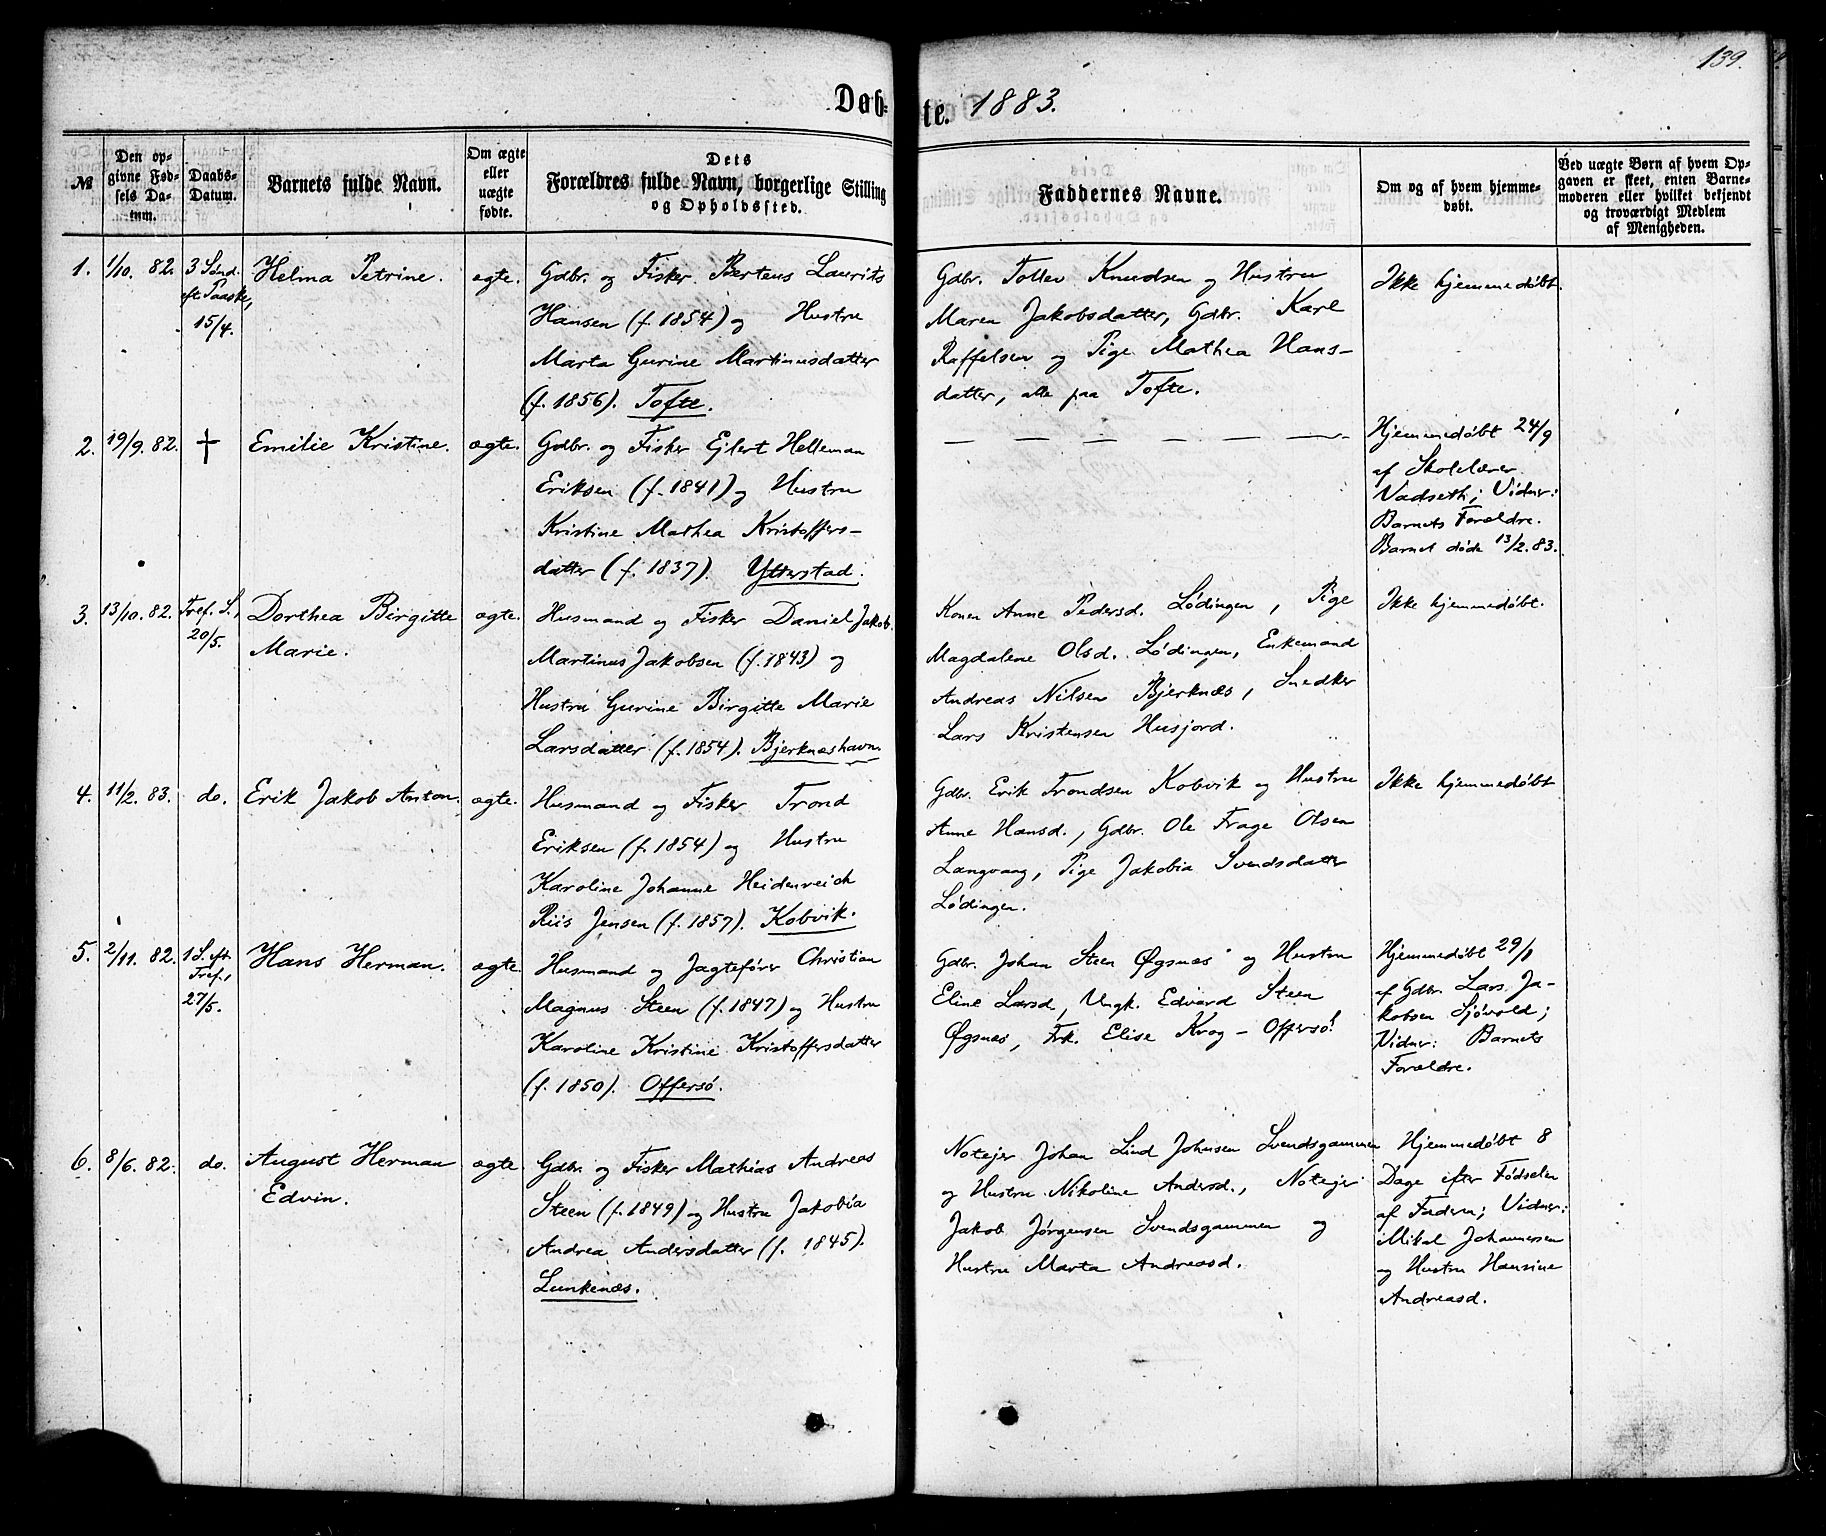 139.
Døb-te. 1883.
№
Den op-
givne Fød-
sels Da-
tum.
Daabs-
Datum.
Barnets fulde Navn.
Om ægte
eller
uægte
fødte.
Dets
Forældres fulde Navn, borgerlige Stilling
og Opholdssted.
Faddernes Navne.
Om og af hvem hjemme-
døbt.
Ved uægte Børn af hvem Op-
gaven er skeet, enten Barne-
moderen eller hvilket bekjendt
og troværdigt Medlem
af Menigheden.
1.
1/10. 82.
3 Sønd.
eft. Paaske,
15/4.
Helma Petrine.
ægte.
Gdbr. og Fisker Bertens Laurits
Hansen (f. 1854) og Hustru
Marta Gurine Martinusdatter
(f. 1856). Tofte.
Gdbr. Tollev Knudsen og Hustru
Maren Jakobsdatter, Gdbr. Karl
Raffelsen og Pige Mathea Hans-
datter, alle paa Tofte.
Ikke hjemmedøbt.
2.
19/9. 82.
†
Emilie Kristine.
ægte.
Gdbr. og Fisker Ejlert Helleman
Eriksen (f. 1841) og Hustru
Kristine Mathea Kristoffers-
datter (f. 1837). Ytterstad.
— — — — — — —
Hjemmedøbt 24/9
af Skolelærer
Vadseth; Vidner:
Barnets Forældre.
Barnet døde 13/2. 83.
3.
13/10. 82.
Tref. S.,
20/5.
Dorthea Birgitte
Marie.
ægte.
Husmand og Fisker Daniel Jakob
Martinus Jakobsen (f. 1843) og
Hustru Gurine Birgitte Marie
Larsdatter (f. 1854). Bjerknæshavn.
Konen Anne Pedersd. Lødingen, Pige
Magdalene Olsd. Lødingen, Enkemand
Andreas Nilsen Bjerknæs, Snedker
Lars Kristensen Husjord.
Ikke hjemmedøbt.
4.
11/2. 83.
do.
Erik Jakob Anton.
ægte.
Husmand og Fisker Trond
Eriksen (f. 1854) og Hustru
Karoline Johanne Heidenreich
Riis Jensen (f. 1857). Kobvik.
Gdbr. Erik Trondsen Kobvik og Hustru
Anne Hansd., Gdbr. Ole Frage Olsen
Langvaag, Pige Jakobia Svendsdatter
Lødingen.
Ikke hjemmedøbt
5.
2/11. 82.
1 S. eft.
Tref.,
27/5.
Hans Herman.
ægte.
Husmand og Jagtefører Christian
Magnus Steen (f. 1847) og Hustru
Karoline Kristine Kristoffersdatter
(f. 1850). Offersø.
Gdbr. Johan Steen Øgsnæs og Hustru
Eline Larsd., Ungk. Edvard Steen
Øgsnæs, Frk. Elise Krog — Offersø.
Hjemmedøbt 29/1
af Gdbr. Lars Ja-
kobsen Sjøvold;
Vidner: Barnets
Forældre.
6.
8/6. 82.
do.
August Herman
Edvin.
ægte.
Gdbr. og Fisker Mathias Andreas
Steen (f. 1849) og Hustru Jakobia
Andrea Andersdatter (f. 1845).
Lunkenæs.
Notejer Johan Lind Johnsen Svendsgammen
og Hustru Nikoline Andersd., Notejer
Jakob Jørgensen Svendsgammen og
Hustru Marta Andreasd.
Hjemmedøbt 8
Dage efter Fødselen
af Faderen; Vidner:
Mikal Johannesen
og Hustru Hansine
Andreasd.